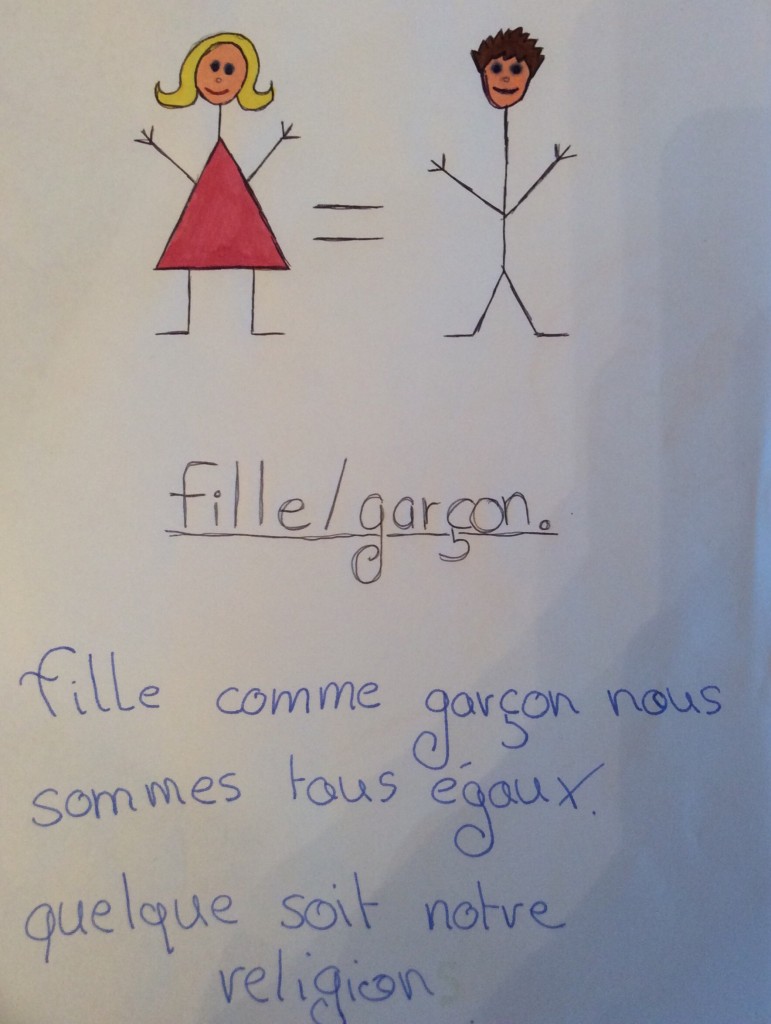 =
fille/garçon.
fille comme garçon nous
sommes tous égaux.
quelque soit notre
religion